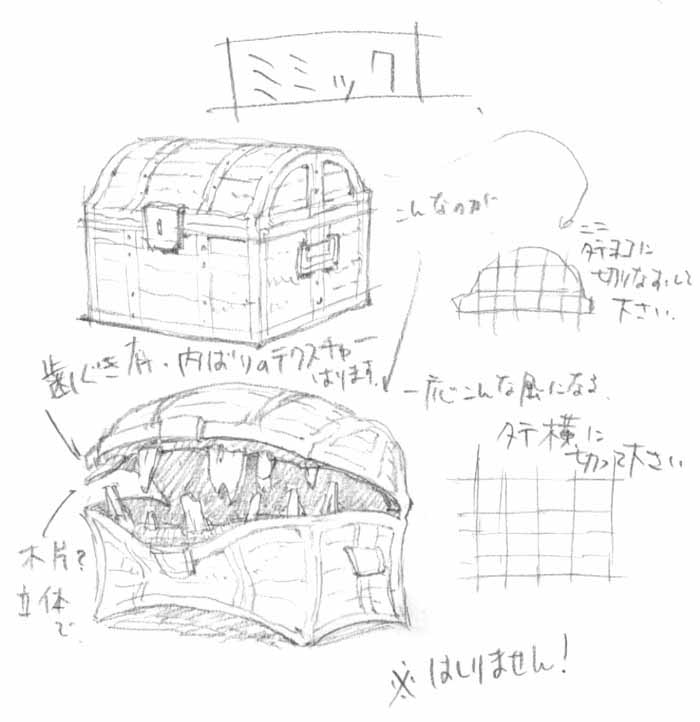 ミミック
こんなのが
ここ
タテヨコに
切りなおして
下さい.
歯ぐき肉・内ばりのテクスチャー
はります.
一応こんな風になる.
タテ横に
切って下さい
木片?
立体
で.
※はしりません!